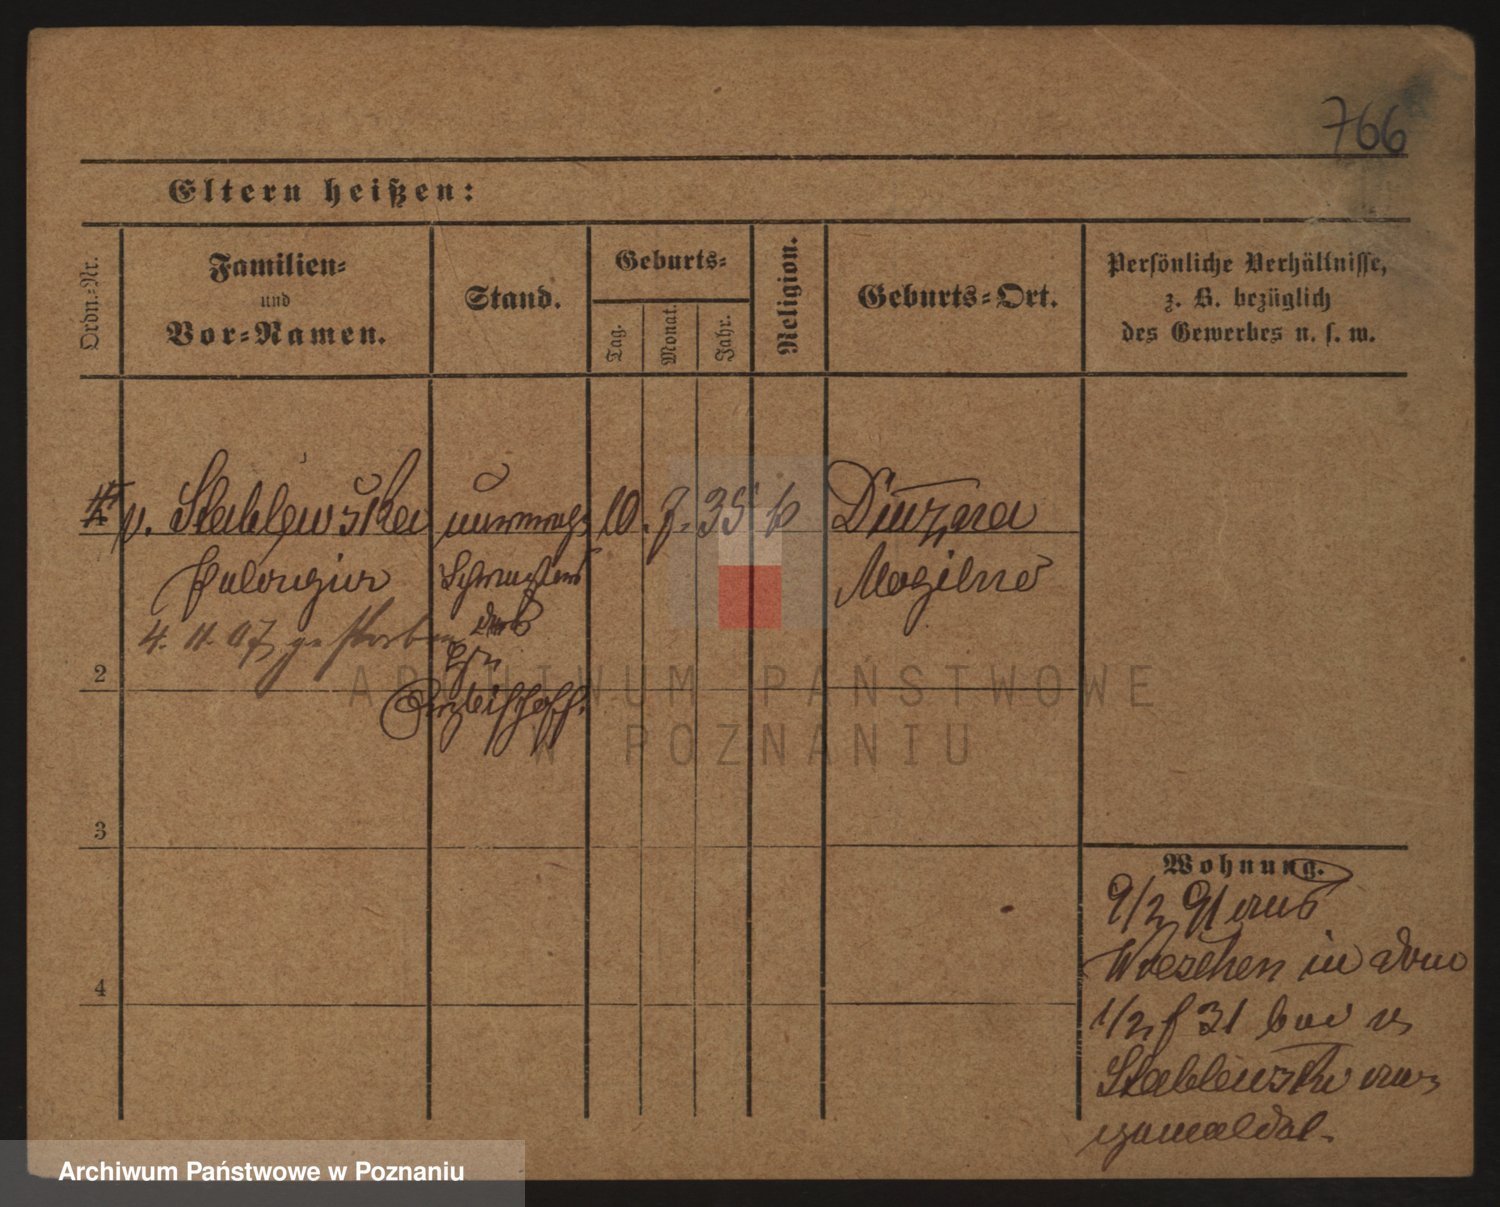 766
Eltern heißen:
Ordn.-Nr.
Familien-
und
Vor-Namen.
Stand.
Geburts-
Tag.
Monat.
Jahr.
Religion.
Geburts-Ort.
Persönliche Verhältnisse,
z. B. bezüglich
des Gewerbes u. s. w.
v. Stablewska unverehl. 10. 7. 35 k Duszna
Pelagia Schwester Mogilno
4. 11. 07 gestorben des
2
Erzbischofs.
3
4
Wohnung.
9/2 91 aus
Wreschen in Dom
1/2 31 bei v
Stablewski an-
gemeldet.
ARCHIWUM PAŃSTWOWE
W POZNANIU
Archiwum Państwowe w Poznaniu